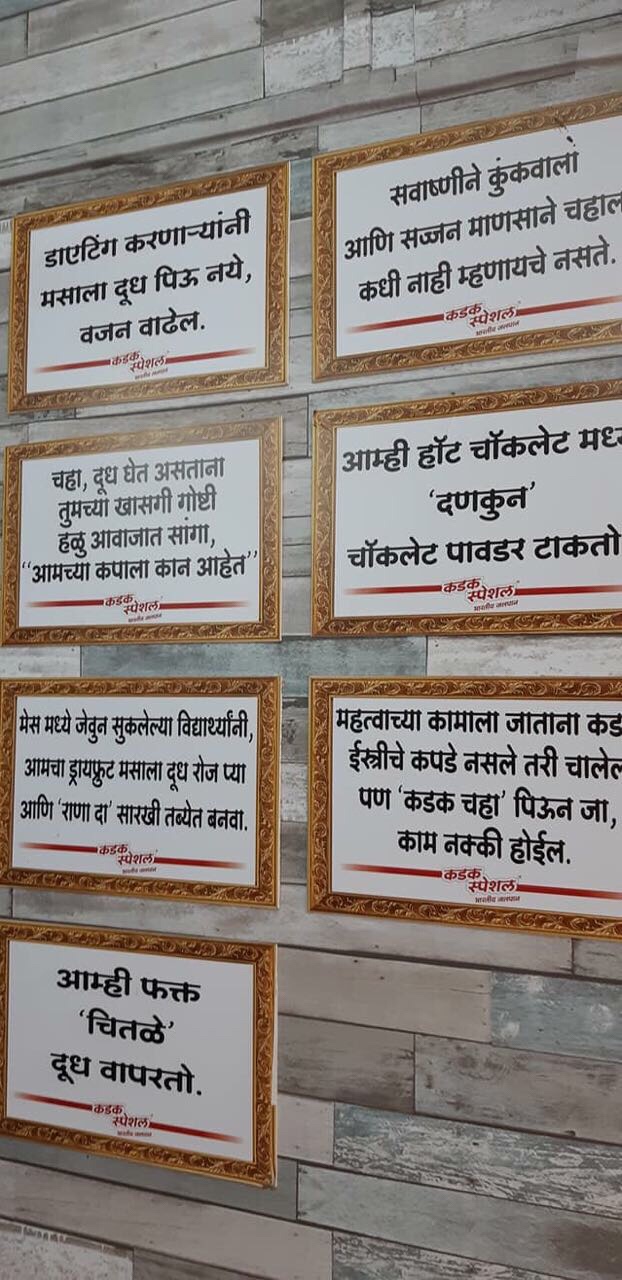 डाएटिंग करणाऱ्यांनी
मसाला दूध पिऊ नये,
वजन वाढेल.
कडक
स्पेशल
भारतीय जलपान
सवाष्णीने कुंकवाला
आणि सज्जन माणसाने चहाल
कधी नाही म्हणायचे नसते.
कडक
स्पेशल
भारतीय जलपान
चहा, दूध घेत असताना
तुमच्या खासगी गोष्टी
हळु आवाजात सांगा,
“आमच्या कपाला कान आहेत”
कडक
स्पेशल
भारतीय जलपान
आम्ही हॉट चॉकलेट मध्
‘दणकुन’
चॉकलेट पावडर टाकतो
कडक
स्पेशल
भारतीय जलपान
मेस मध्ये जेवुन सुकलेल्या विद्यार्थ्यांनी,
आमचा ड्रायफ्रुट मसाला दूध रोज प्या
आणि ‘राणा दा’ सारखी तब्येत बनवा.
कडक
स्पेशल
भारतीय जलपान
महत्वाच्या कामाला जाताना कड
ईस्त्रीचे कपडे नसले तरी चालेल
पण ‘कडक चहा’ पिऊन जा,
काम नक्की होईल.
कडक
स्पेशल
भारतीय जलपान
आम्ही फक्त
‘चितळे’
दूध वापरतो.
कडक
स्पेशल
भारतीय जलपान